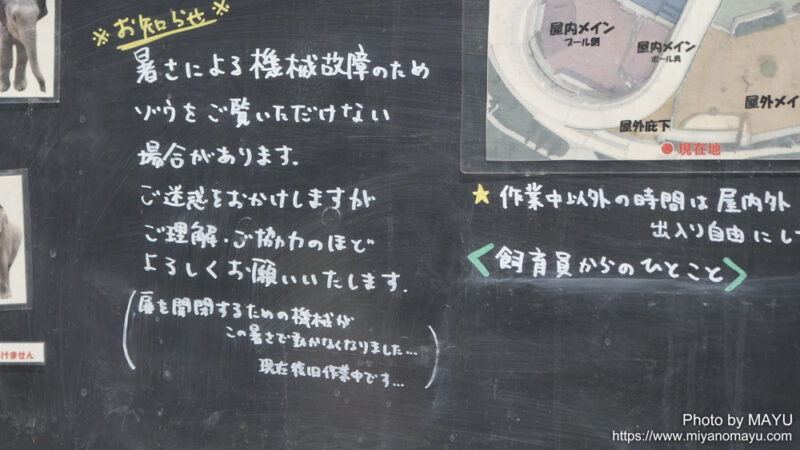 ※お知らせ※
暑さによる機械故障のため
ゾウをご覧いただけない
場合があります。
ご迷惑をおかけしますが
ご理解・ご協力のほど
よろしくお願いいたします。
(扉を開閉するための機械が
この暑さで動かなくなりました…
現在復旧作業中です…)
けません
屋内メイン
プール側
屋内メイン
ポール奥
屋外メイ
屋外庇下
●現在地
★作業中以外の時間は屋内外
出入り自由にし
<飼育員からのひとこと>
Photo by MAYU
https://www.miyanomayu.com